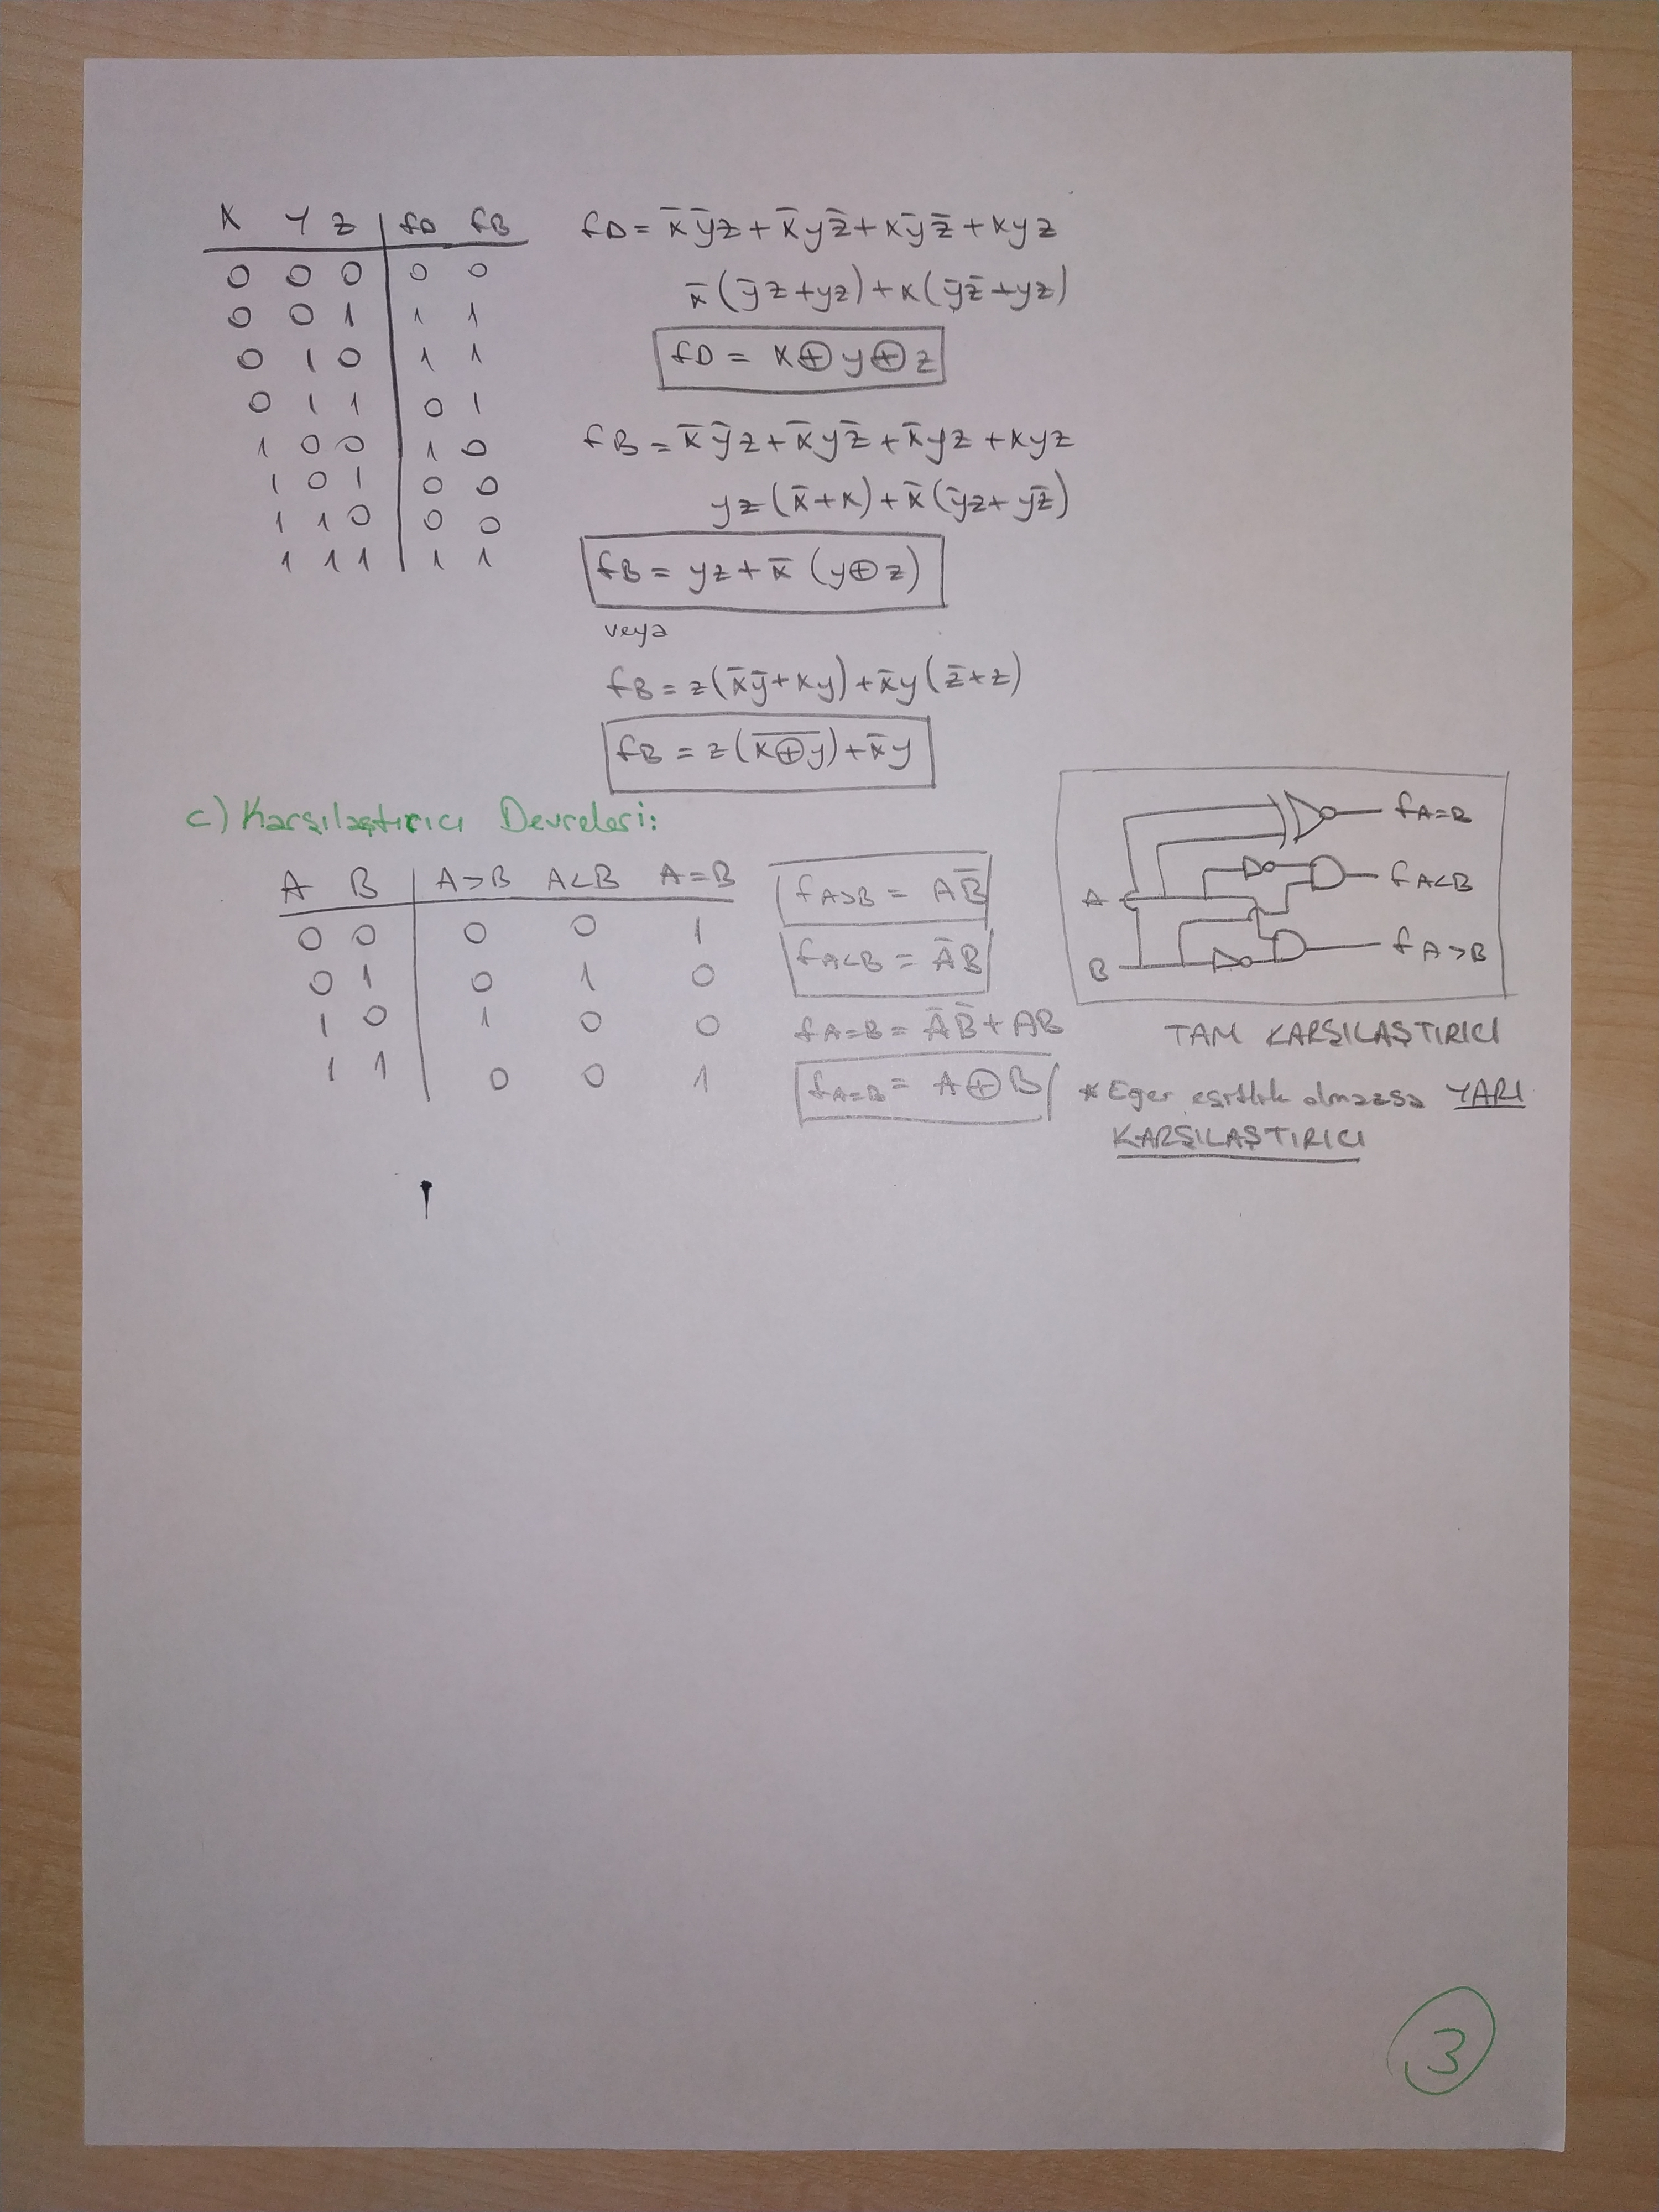 x y z fD fB
0 0 0 0 0
0 0 1 1 1
0 1 0 1 1
0 1 1 0 1
1 0 0 1 0
1 0 1 0 0
1 1 0 0 0
1 1 1 1 1
fD = x̄ȳz + x̄yz̄ + xȳz̄ + xyz
x̄(ȳz+yz̄) + x(ȳz̄+yz)
fD = x⊕y⊕z
fB = x̄ȳz + x̄yz̄ + x̄yz + xyz
yz(x̄+x) + x̄(ȳz+yz̄)
fB = yz + x̄(y⊕z)
veya
fB = z(x̄ȳ+xy) + x̄y(z̄+z)
fB = z(x̅⊕̅y̅) + x̄y
c) Karşılaştırıcı Devreleri:
A B A>B A<B A=B
0 0 0 0 1
0 1 0 1 0
1 0 1 0 0
1 1 0 0 1
fA>B = AB̄
fA<B = ĀB
fA=B = ĀB̄ + AB
fA=B = A⊕B
A
B
fA=B
fA<B
fA>B
TAM KARŞILAŞTIRICI
* Eger esitlik olmazsa YARI
KARŞILAŞTIRICI
3